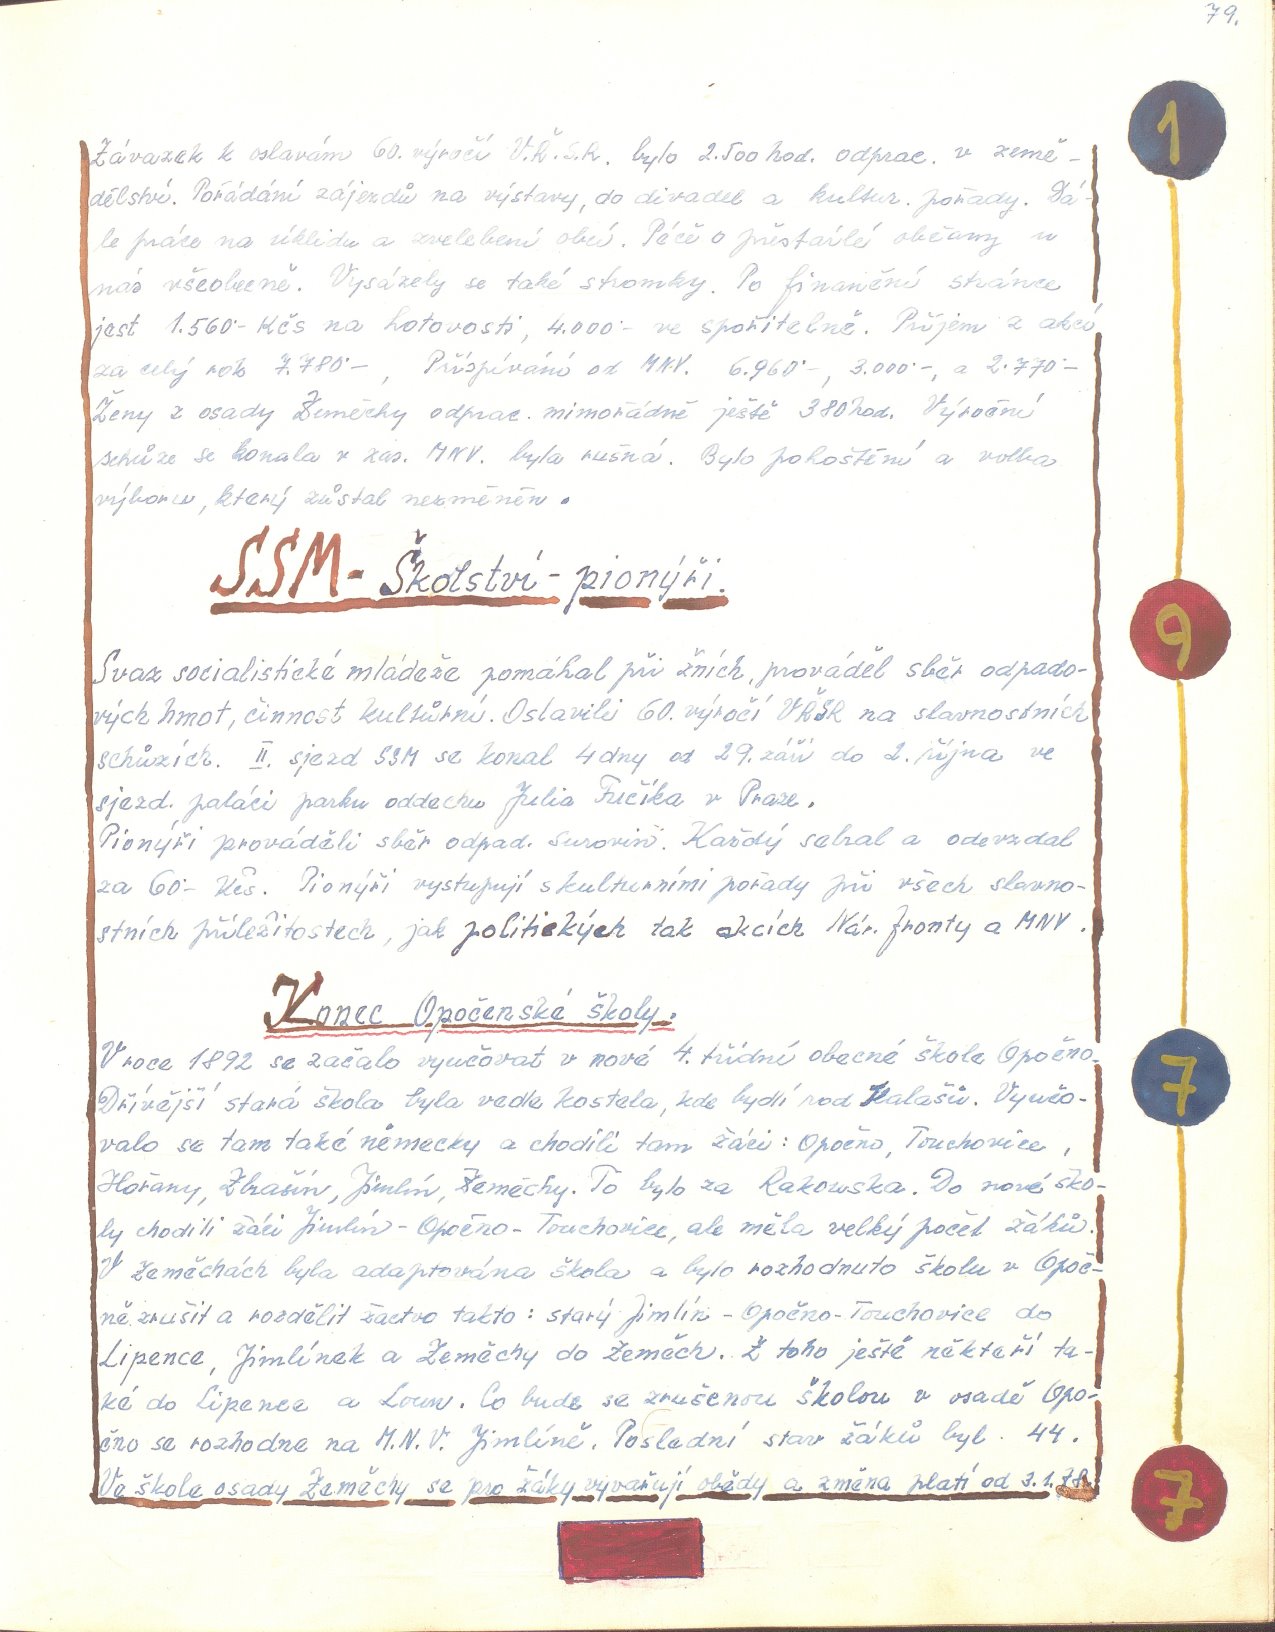 79.
Závazek k oslavám 60. výročí V.Ř.S.R. bylo 2.500 hod. odprac. v země-
dělství. Pořádání zájezdů na výstavy, do divadel a kultur. pořady. Dá-
le práce na úklidu a zvelebení obcí. Péče o přestárlé občany u
nás všeobecně. Vysázely se také stromky. Po finanční stránce
jest 1.560·- Kčs na hotovosti, 4.000·- ve spořitelně. Příjem z akcí
za celý rok 7.780·-, Přispívání od MNV. 6.960·-, 3.000·-, a 2.770·-
Ženy z osady Zeměchy odprac. mimořádně ještě 380 hod. Výroční
schůze se konala v zas. MNV. byla rušná. Bylo pohoštění a volba
výboru, který zůstal nezměněn.
SSM - Školství - pionýři.
Svaz socialistické mládeže pomáhal při žních, prováděl sběr odpado-
vých hmot, činnost kultůrní. Oslavili 60. výročí VŘSR na slavnostních
schůzích. II. sjezd SSM se konal 4 dny od 29. září do 2. října ve
sjezd. paláci parku oddechu Julia Fučíka v Praze.
Pionýři prováděli sběr odpad. surovin. Každý sebral a odevzdal
za 60·- Kčs. Pionýři vystupují s kulturními pořady při všech slavno-
stních příležitostech, jak politických tak akcích Nár. fronty a MNV.
Konec Opočenské školy.
V roce 1892 se začalo vyučovat v nové 4. třídní obecné škole Opočno.
Dřívější stará škola byla vedle kostela, kde bydlí rod Kalašů. Vyučo-
valo se tam také německy a chodili tam žáci: Opočno, Touchovice,
Hořany, Zbrašín, Jimlín, Zeměchy. To bylo za Rakouska. Do nové ško-
ly chodili žáci Jimlín - Opočno - Touchovice, ale měla velký počet žáků.
V Zeměchách byla adaptována škola a bylo rozhodnuto školu v Opoč-
ně zrušit a rozdělit žactvo takto: starý Jimlín - Opočno - Touchovice do
Lipence, Jimlínek a Zeměchy do Zeměch. Z toho ještě někteří ta-
ké do Lipence a Loun. Co bude se zrušenou školou v osadě Opo-
čno se rozhodne na M.N.V. Jimlíně. Poslední stav žáků byl 44.
Ve škole osady Zeměchy se pro žáky vyvařují obědy a změna platí od 3.1.78.
1
9
7
7